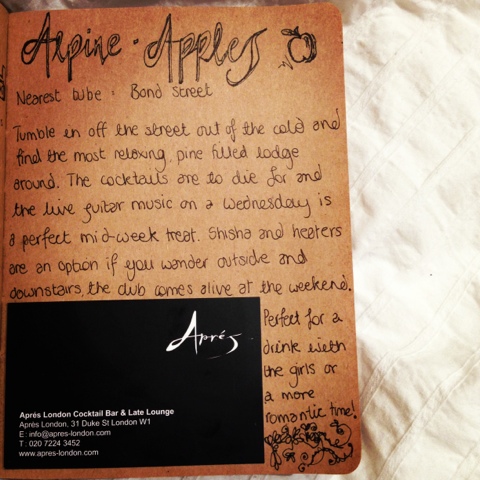 Alpine · Apples
Nearest tube : Bond Street
Tumble in off the street out of the cold and
find the most relaxing, pine filled lodge
around. The cocktails are to die for and
the live guitar music on a Wednesday is
a perfect mid-week treat. Shisha and heaters
are an option if you wander outside and
downstairs, the club comes alive at the weekend.
Perfect for a
drink with
the girls or
a more
romantic time!
Aprés
Aprés London Cocktail Bar & Late Lounge
Aprés London, 31 Duke St London W1
E : info@apres-london.com
T : 020 7224 3452
www.apres-london.com